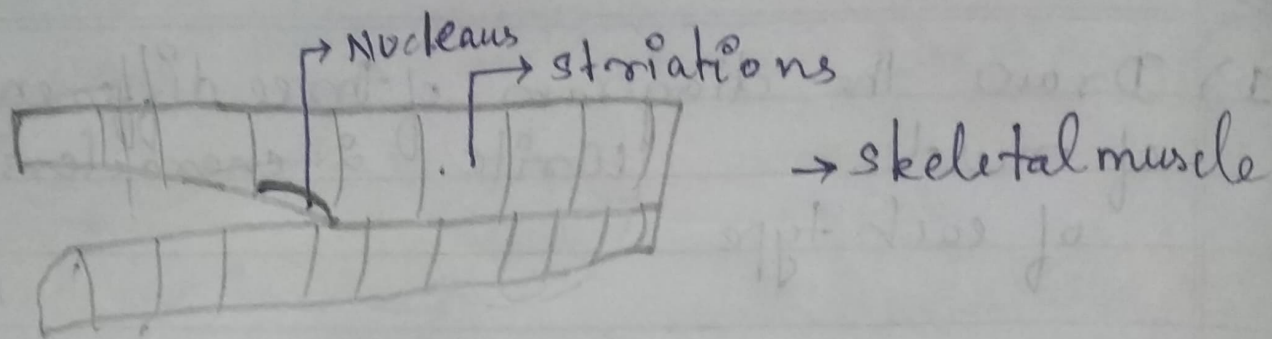 Nucleaus
striations
→ skeletal muscle